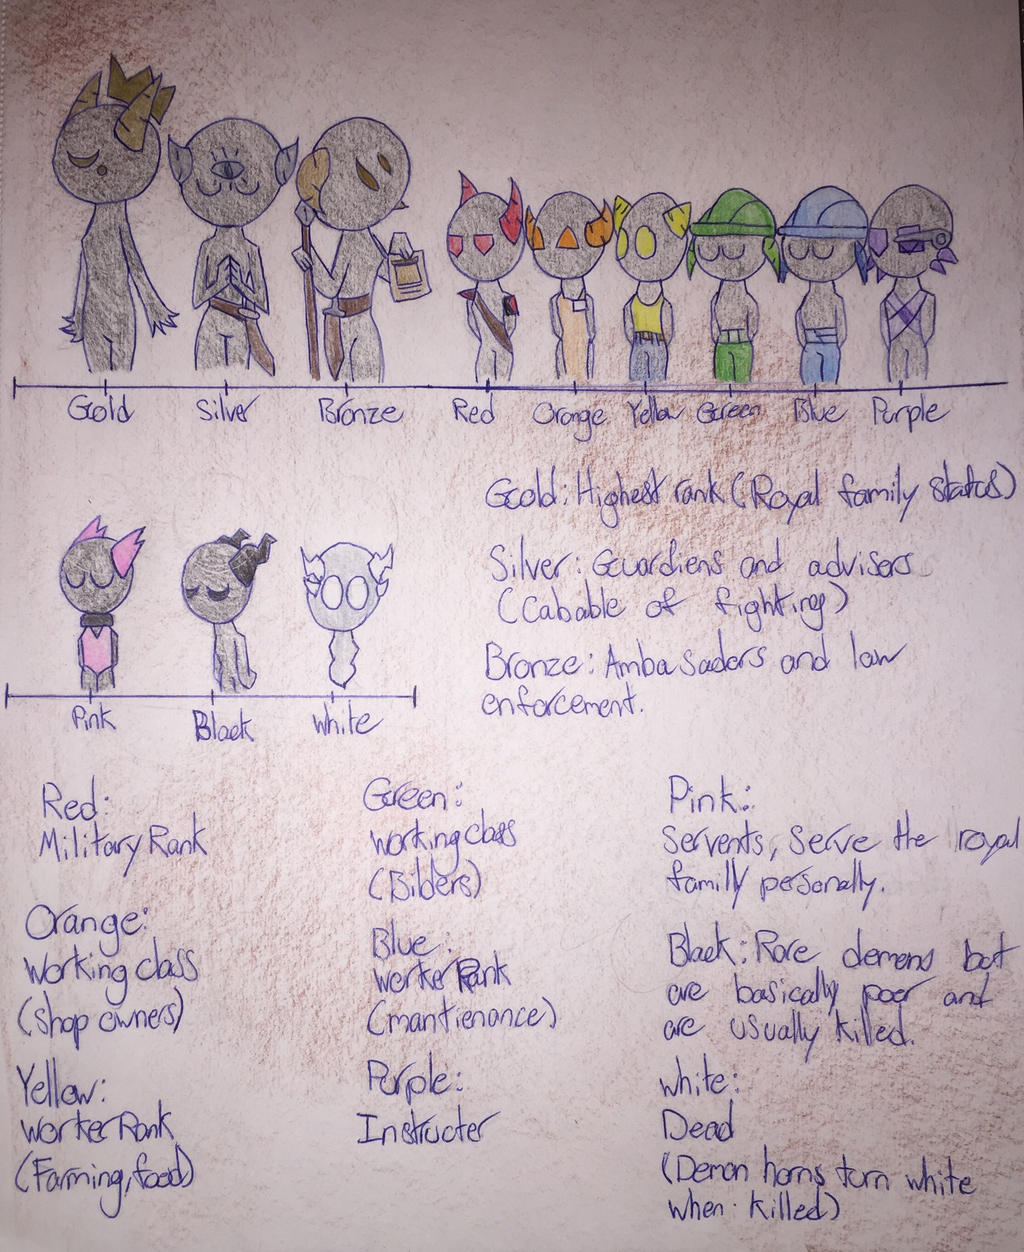 Gold
Silver
Bronze
Red
Orange
Yellow
Green
Blue
Purple
Gold: Highest rank (Royal family status)
Silver: Guardiens and advisers
(Cabable of fighting)
Bronze: Ambasaders and law
enforcement.
Pink
Black
White
Red:
Military Rank
Orange:
working class
(shop owners)
Yellow:
Worker Rank
(Farming, food)
Green:
working class
(Bilders)
Blue:
Worker Rank
(mantienance)
Purple:
Instructer
Pink:
Servents, Serve the royal
familly personally.
Black: Rare demens but
are basically poor and
are usually killed.
White:
Dead
(Demon horns turn white
when killed)